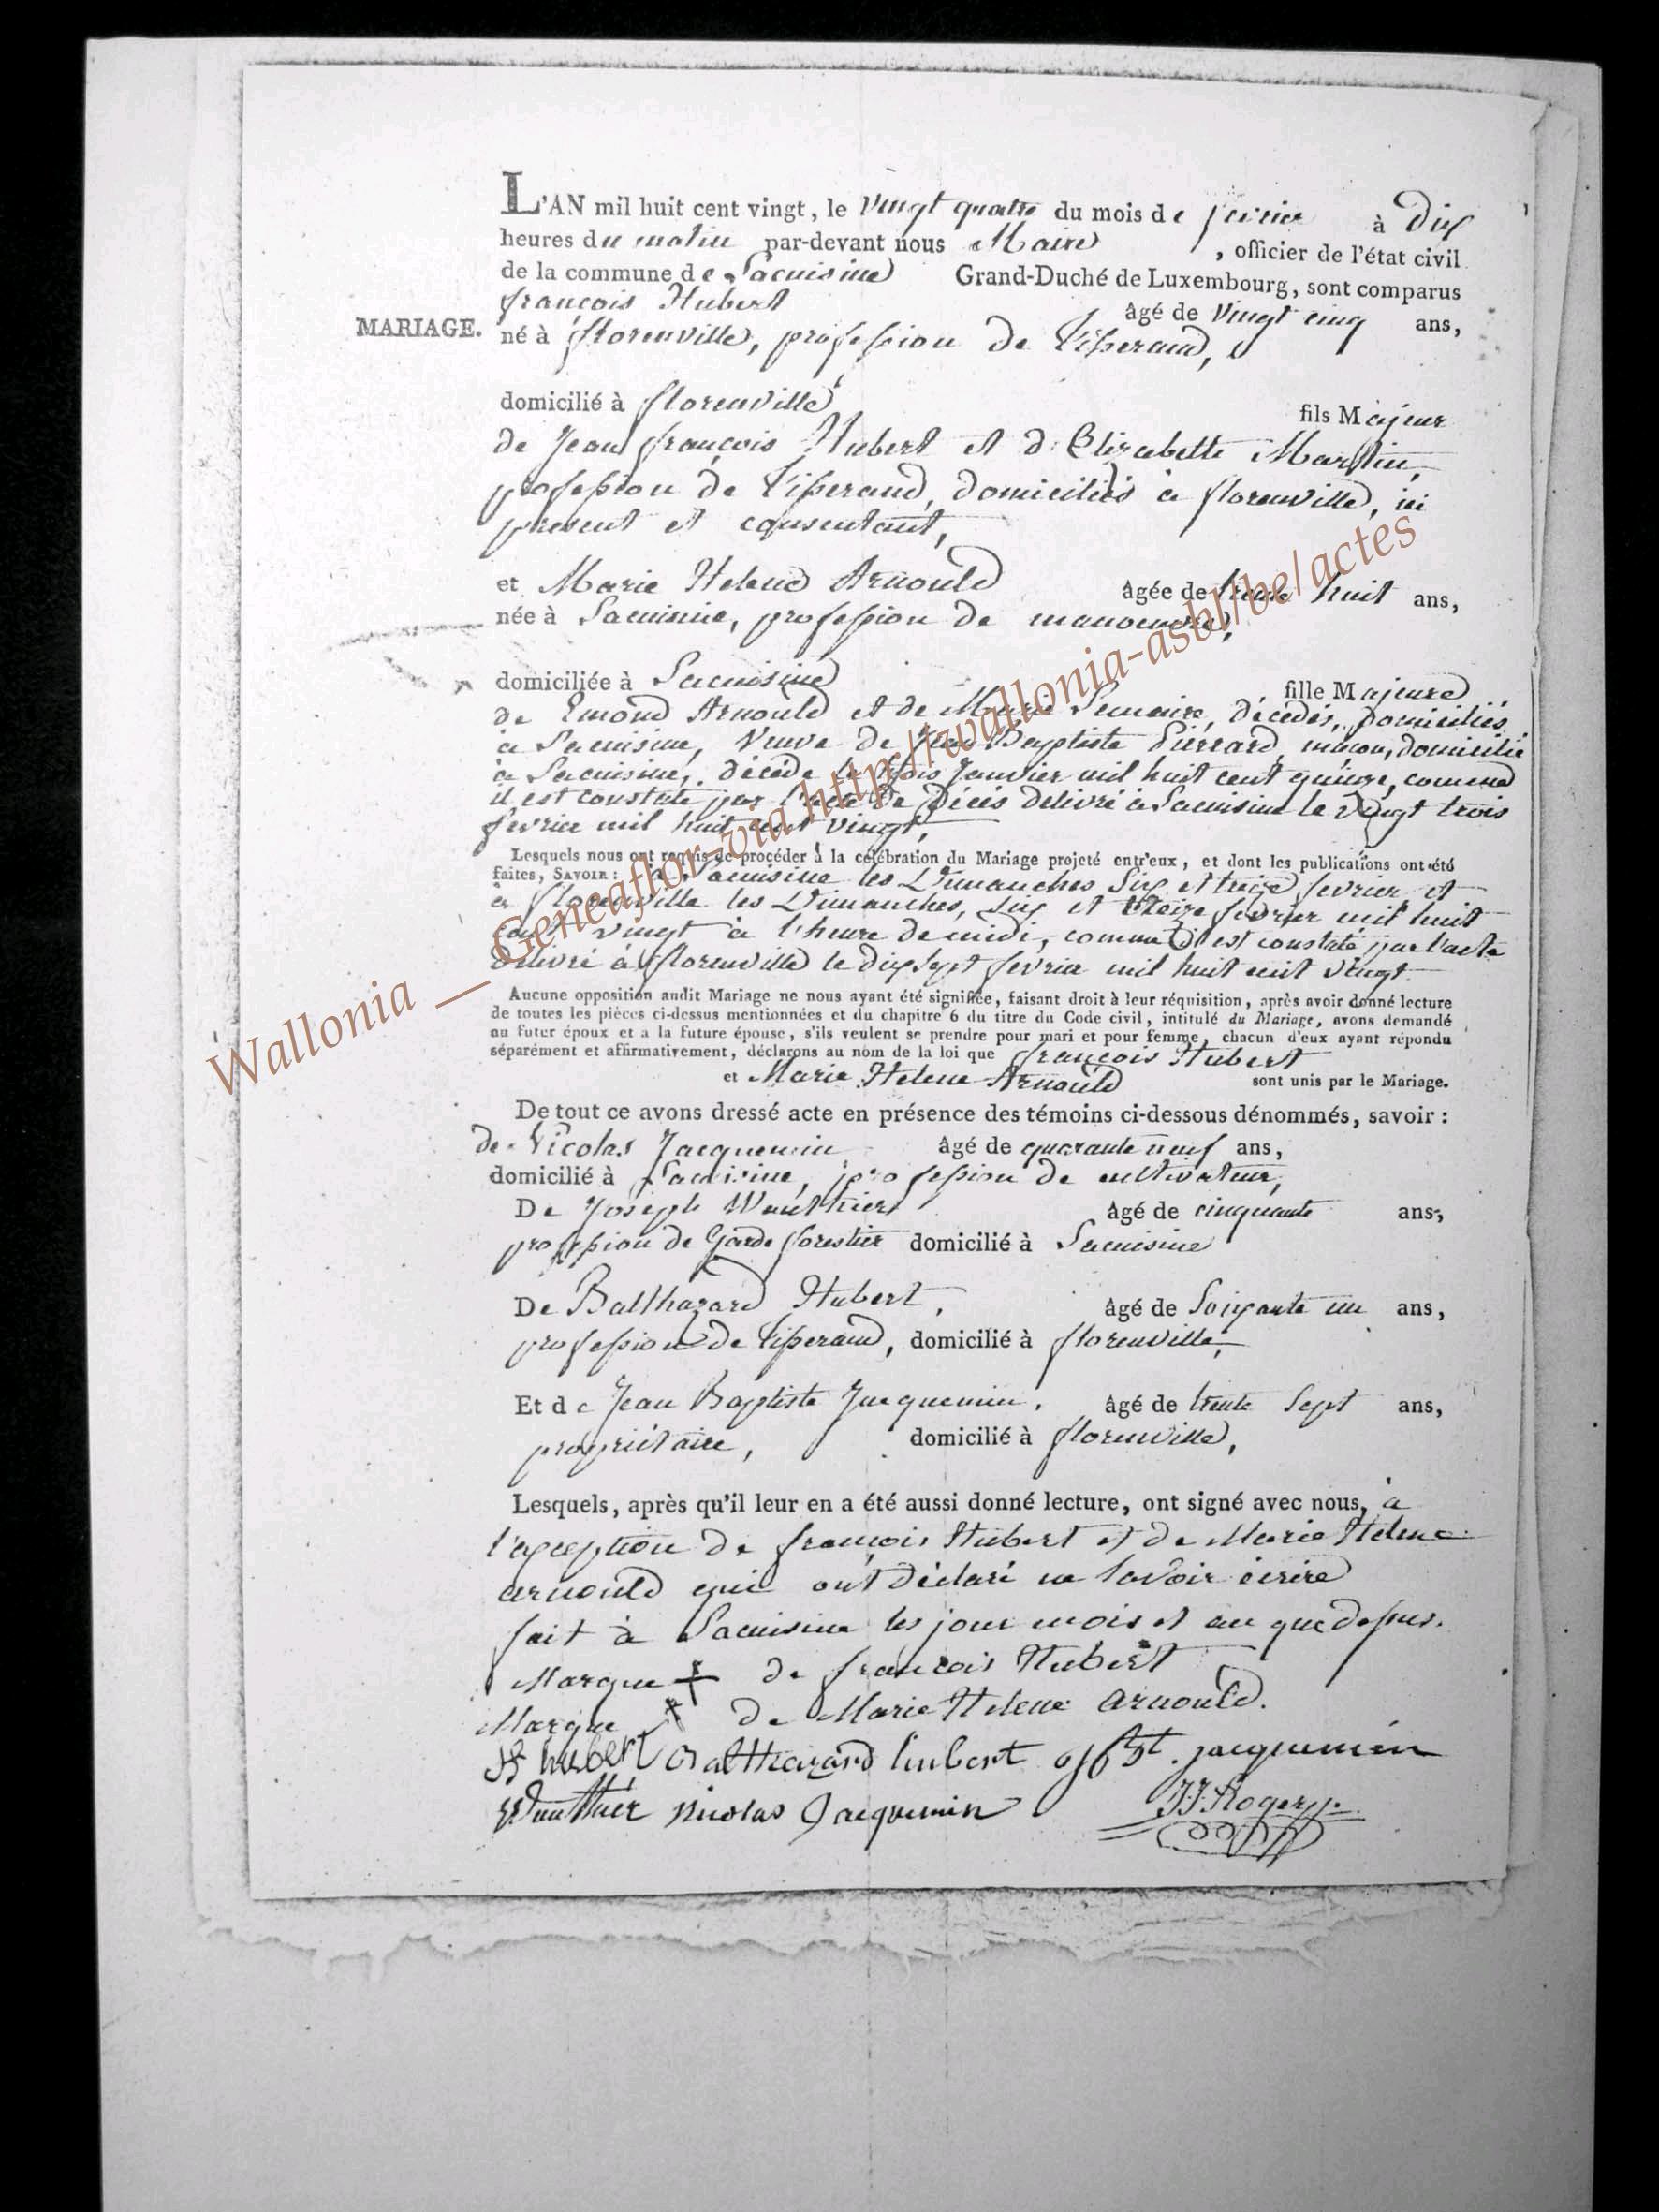 L'AN mil huit cent vingt, le vingt quatre du mois de fevrier à dix
heures du matin par-devant nous Maire, officier de l'état civil
de la commune de Lacuisine Grand-Duché de Luxembourg, sont comparus
françois Hubert âgé de vingt cinq ans,
MARIAGE. né à florenville, profession de tisserand,
domicilié à florenville fils Majeur
de Jean françois Hubert et d'Elizabette Martin,
profession de tisserand, domiciliés à florenville, ici
present et consentant,
et Marie Helene Arnould âgée de trente huit ans,
née à Lacuisine, profession de manoeuvre,
domiciliée à Lacuisine fille Majeure
de Emond Arnould et de Marie Lemaire, décédés, domiciliés
à Lacuisine, Veuve de Jean Baptiste Pierrard, macon, domicilié
à Lacuisine, décédé le trois Janvier mil huit cent quinze, comme
il est constaté par l'acte de décés delivré à Lacuisine le vingt trois
fevrier mil huit cent vingt,
Lesquels nous ont requis de procéder à la célébration du Mariage projeté entr'eux, et dont les publications ont été
faites, SAVOIR : à Lacuisine les Dimanches Six et treize fevrier et
à florenville les Dimanches, six et treize fevrier mil huit
cent vingt à l'heure de midi, comme il est constaté par l'acte
delivré à florenville le dix sept fevrier mil huit cent vingt
Aucune opposition audit Mariage ne nous ayant été signifiée, faisant droit à leur réquisition, après avoir donné lecture
de toutes les pièces ci-dessus mentionnées et du chapitre 6 du titre du Code civil, intitulé du Mariage, avons demandé
au futur époux et a la future épouse, s'ils veulent se prendre pour mari et pour femme, chacun d'eux ayant répondu
séparément et affirmativement, déclarons au nom de la loi que françois Hubert
et Marie Helene Arnould sont unis par le Mariage.
De tout ce avons dressé acte en présence des témoins ci-dessous dénommés, savoir :
de Nicolas Jacquemin âgé de quarante neuf ans,
domicilié à Lacuisine, profession de cultivateur,
De Joseph Wauthier âgé de cinquante ans,
profession de Garde forestier domicilié à Lacuisine
De Balthazard Hubert, âgé de Soixante un ans,
profession de tisserand, domicilié à florenville,
Et de Jean Baptiste Jacquemin, âgé de trente Sept ans,
propriétaire, domicilié à florenville,
Lesquels, après qu'il leur en a été aussi donné lecture, ont signé avec nous, à
l'exception de françois Hubert et de Marie Helene
arnould qui ont déclaré ne savoir écrire
fait à Lacuisine les jour mois et an que dessus.
Marque + de françois Hubert
Marque + de Marie Helene Arnould.
hubert Balthazard hubert jacquemin
Wauthier nicolas Jacquemin J J Roger
Wallonia __ Geneaflor-via http://wallonia-asbl/be/actes